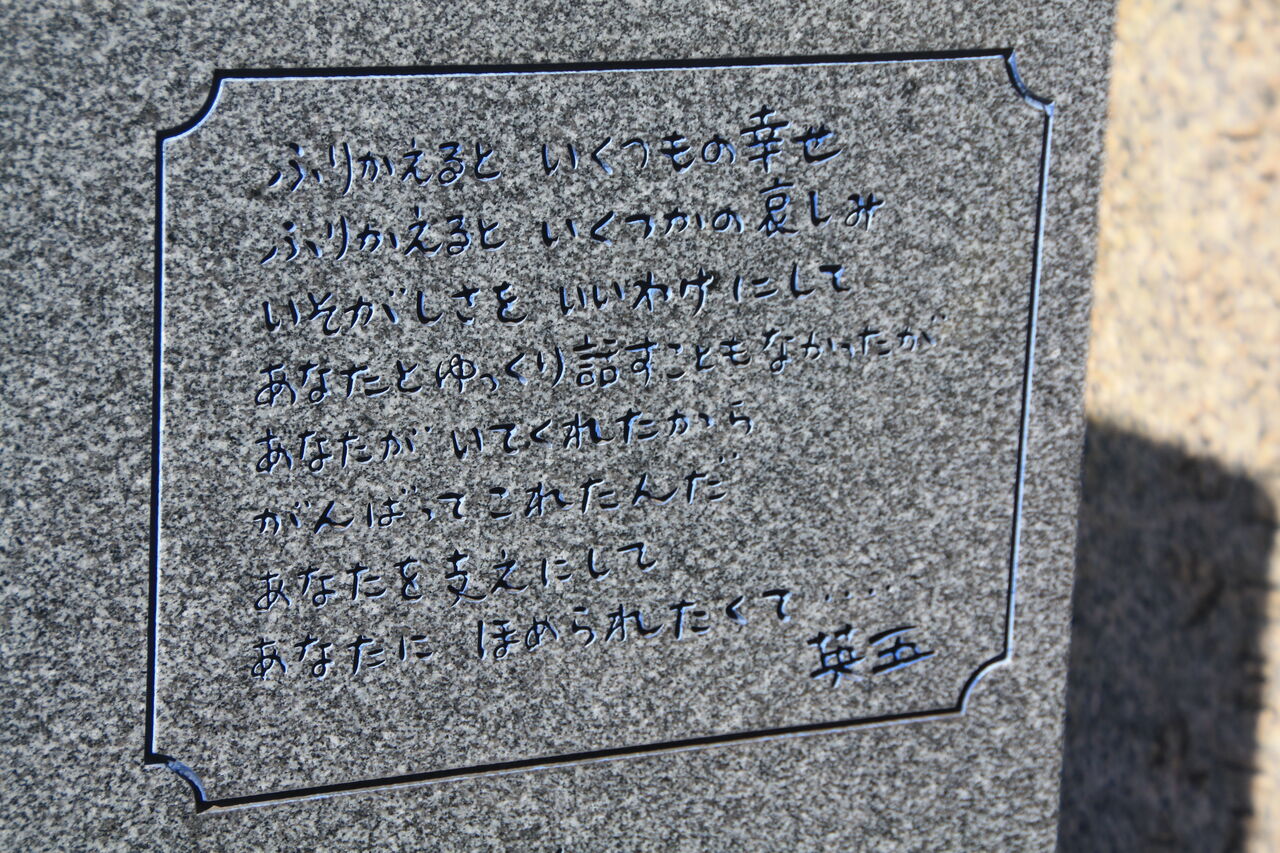 ふりかえると いくつもの幸せ
ふりかえると いくつかの哀しみ
いそがしさを いいわけにして
あなたとゆっくり話すこともなかったが
あなたが いてくれたから
がんばってこれたんだ
あなたを支えにして
あなたに ほめられたくて‥‥
英五